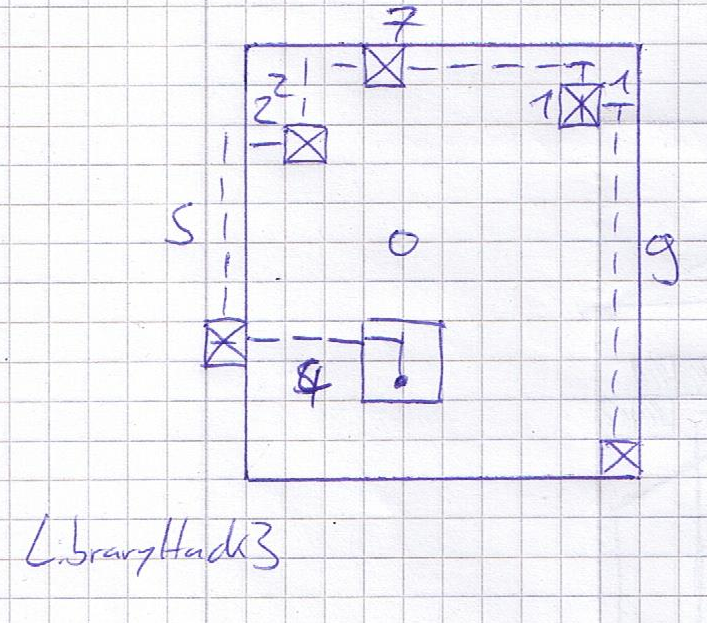 7
2 1
2 1
5
0
9
4
LibraryHack3